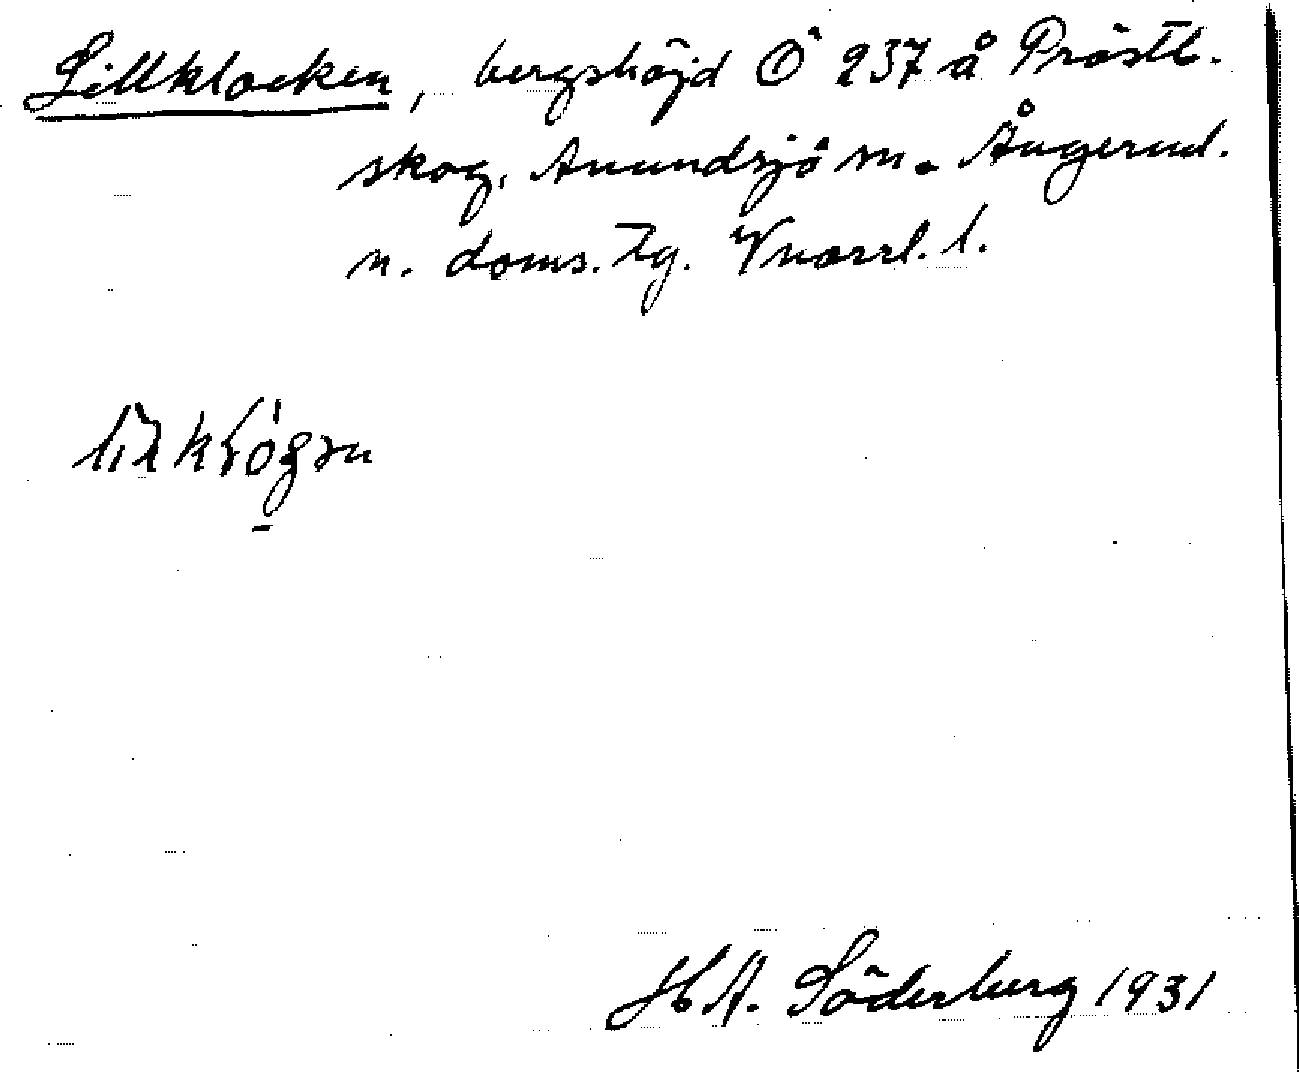 Lillklocken, bergshöjd Ö 237 å Prästb.
skog, Anundsjö sn. Ångerml.
n. doms. Tg. Vnorrl. l.
H A. Söderberg 1931